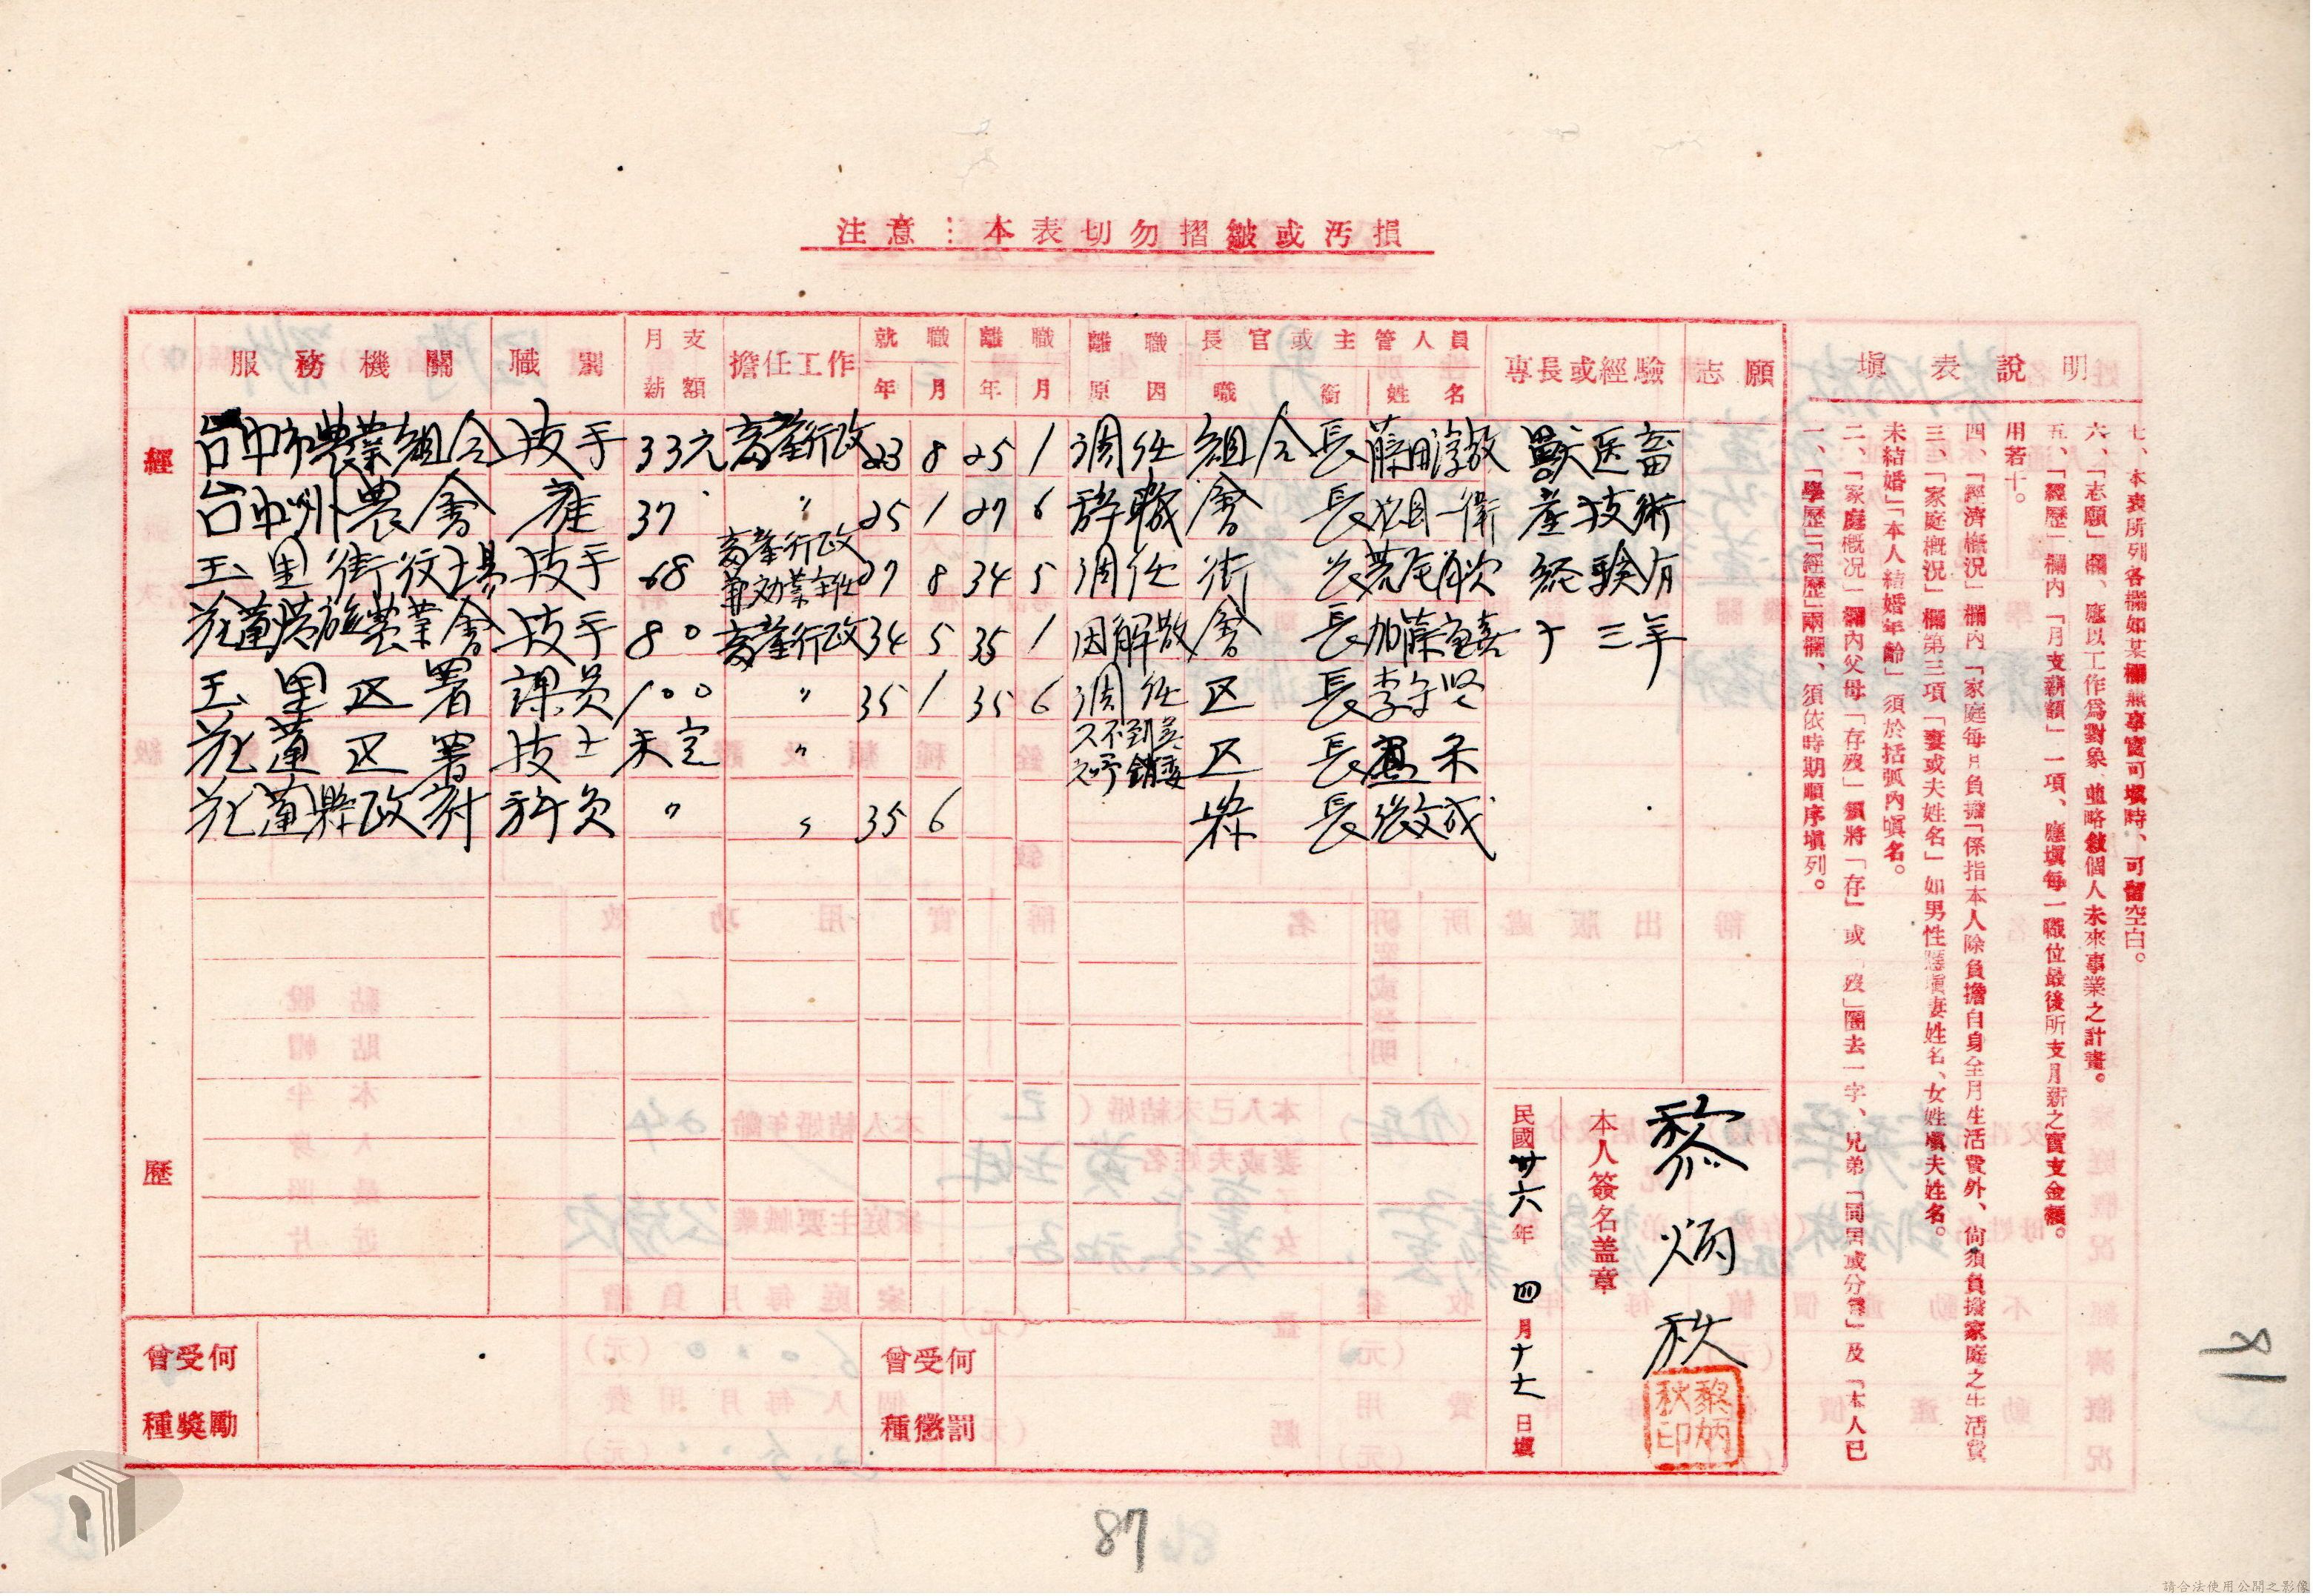 注意：本表切勿摺皺或污損
經歷
服務機關 職別 月支薪額 擔任工作 就職年月 離職年月 離職原因 長官或主管人員職銜姓名 專長或經驗 志願
台中市農業組合 技手 33元 畜產行政 23 8 25 1 調任 組合長 獸医畜
台中州農會 雇 37 〃 25 1 27 6 辞職 會長 產技術
玉里街役場 技手 68 畜產行政 27 8 34 5 調任 街長 経驗有
花蓮港廳農業會 技手 80 畜產行政 34 5 35 1 因解散 會長 十三年
玉里区署 課員 100 〃 35 1 35 6 調任 区長
花蓮区署 技士 未定 〃 区長
花蓮縣政府 科員 〃 〃 35 6 縣長 張文成
曾受何種獎勵
曾受何種懲罰
本人簽名蓋章
黎炳秋
黎炳秋印
民國卅六年 四月十七日填
填表說明
一、「學歷」「經歷」兩欄、須依時期順序填列。
二、「家庭概況」欄內父母「存歿」須將「存」或「歿」圈去一字、兄弟「同居或分居」及「本人已
未結婚」「本人結婚年齡」須於括弧內填名。
三、「家庭概況」欄第三項「妻或夫姓名」如男性應填妻姓名、女姓填夫姓名。
四、「經濟概況」欄內「家庭每月負擔」係指本人除負擔自身全月生活費外、尚須負擔家庭之生活費
用若干。
五、「經歷」欄內「月支薪額」一項、應填每一職位最後所支月薪之實支金額。
六、「志願」欄、應以工作為對象、並略敍個人未來事業之計畫。
七、本表所列各欄如某欄無事實可填時、可留空白。
87
請合法使用公開之影像